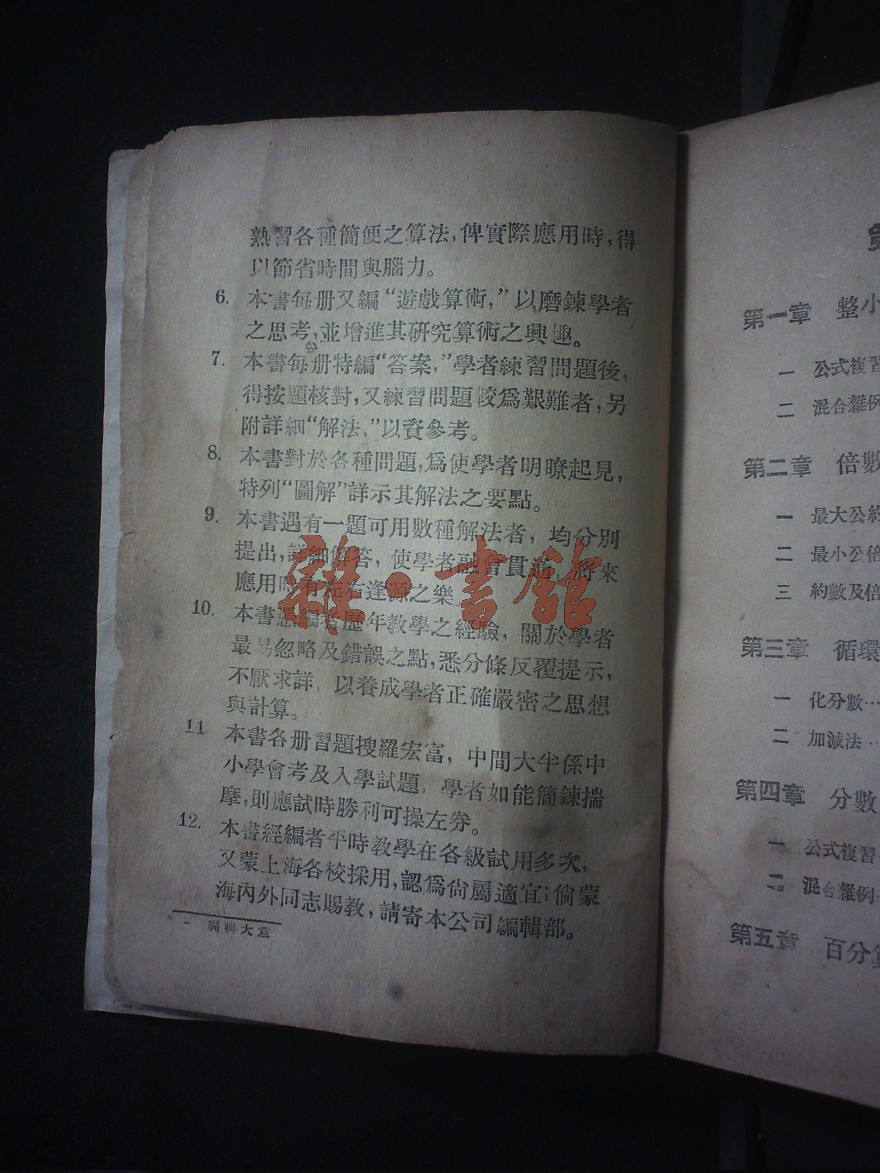 熟習各種簡便之算法,俾實際應用時,得
以節省時間與腦力。
6. 本書每册又編“遊戲算術,”以磨鍊學者
之思考,並增進其研究算術之興趣。
7. 本書每册特編“答案,”學者練習問題後,
得按題核對,又練習問題較爲艱難者,另
附詳細“解法,”以資參考。
8. 本書對於各種問題,爲使學者明瞭起見,
特列“圖解”詳示其解法之要點。
9. 本書遇有一題可用數種解法者,均分別
提出,詳細解答,使學者融會貫通,將來
應用時有左右逢源之樂
10. 本書編者歷年教學之經驗,關於學者
最易忽略及錯誤之點,悉分條反覆提示,
不厭求詳,以養成學者正確嚴密之思想
與計算。
11 本書各册習題搜羅宏富,中間大半係中
小學會考及入學試題,學者如能簡鍊揣
摩,則應試時勝利可操左券。
12. 本書經編者平時教學在各級試用多次,
又蒙上海各校採用,認爲尙屬適宜;倘蒙
海內外同志賜教,請寄本公司編輯部。
編輯大意
雜·書館
第
第一章 整小
一 公式複習
二 混合雜例
第二章 倍數
一 最大公約
二 最小公倍
三 約數及倍
第三章 循環
一 化分數…
二 加減法…
第四章 分數
一 公式複習
二 混合雜例
第五章 百分算